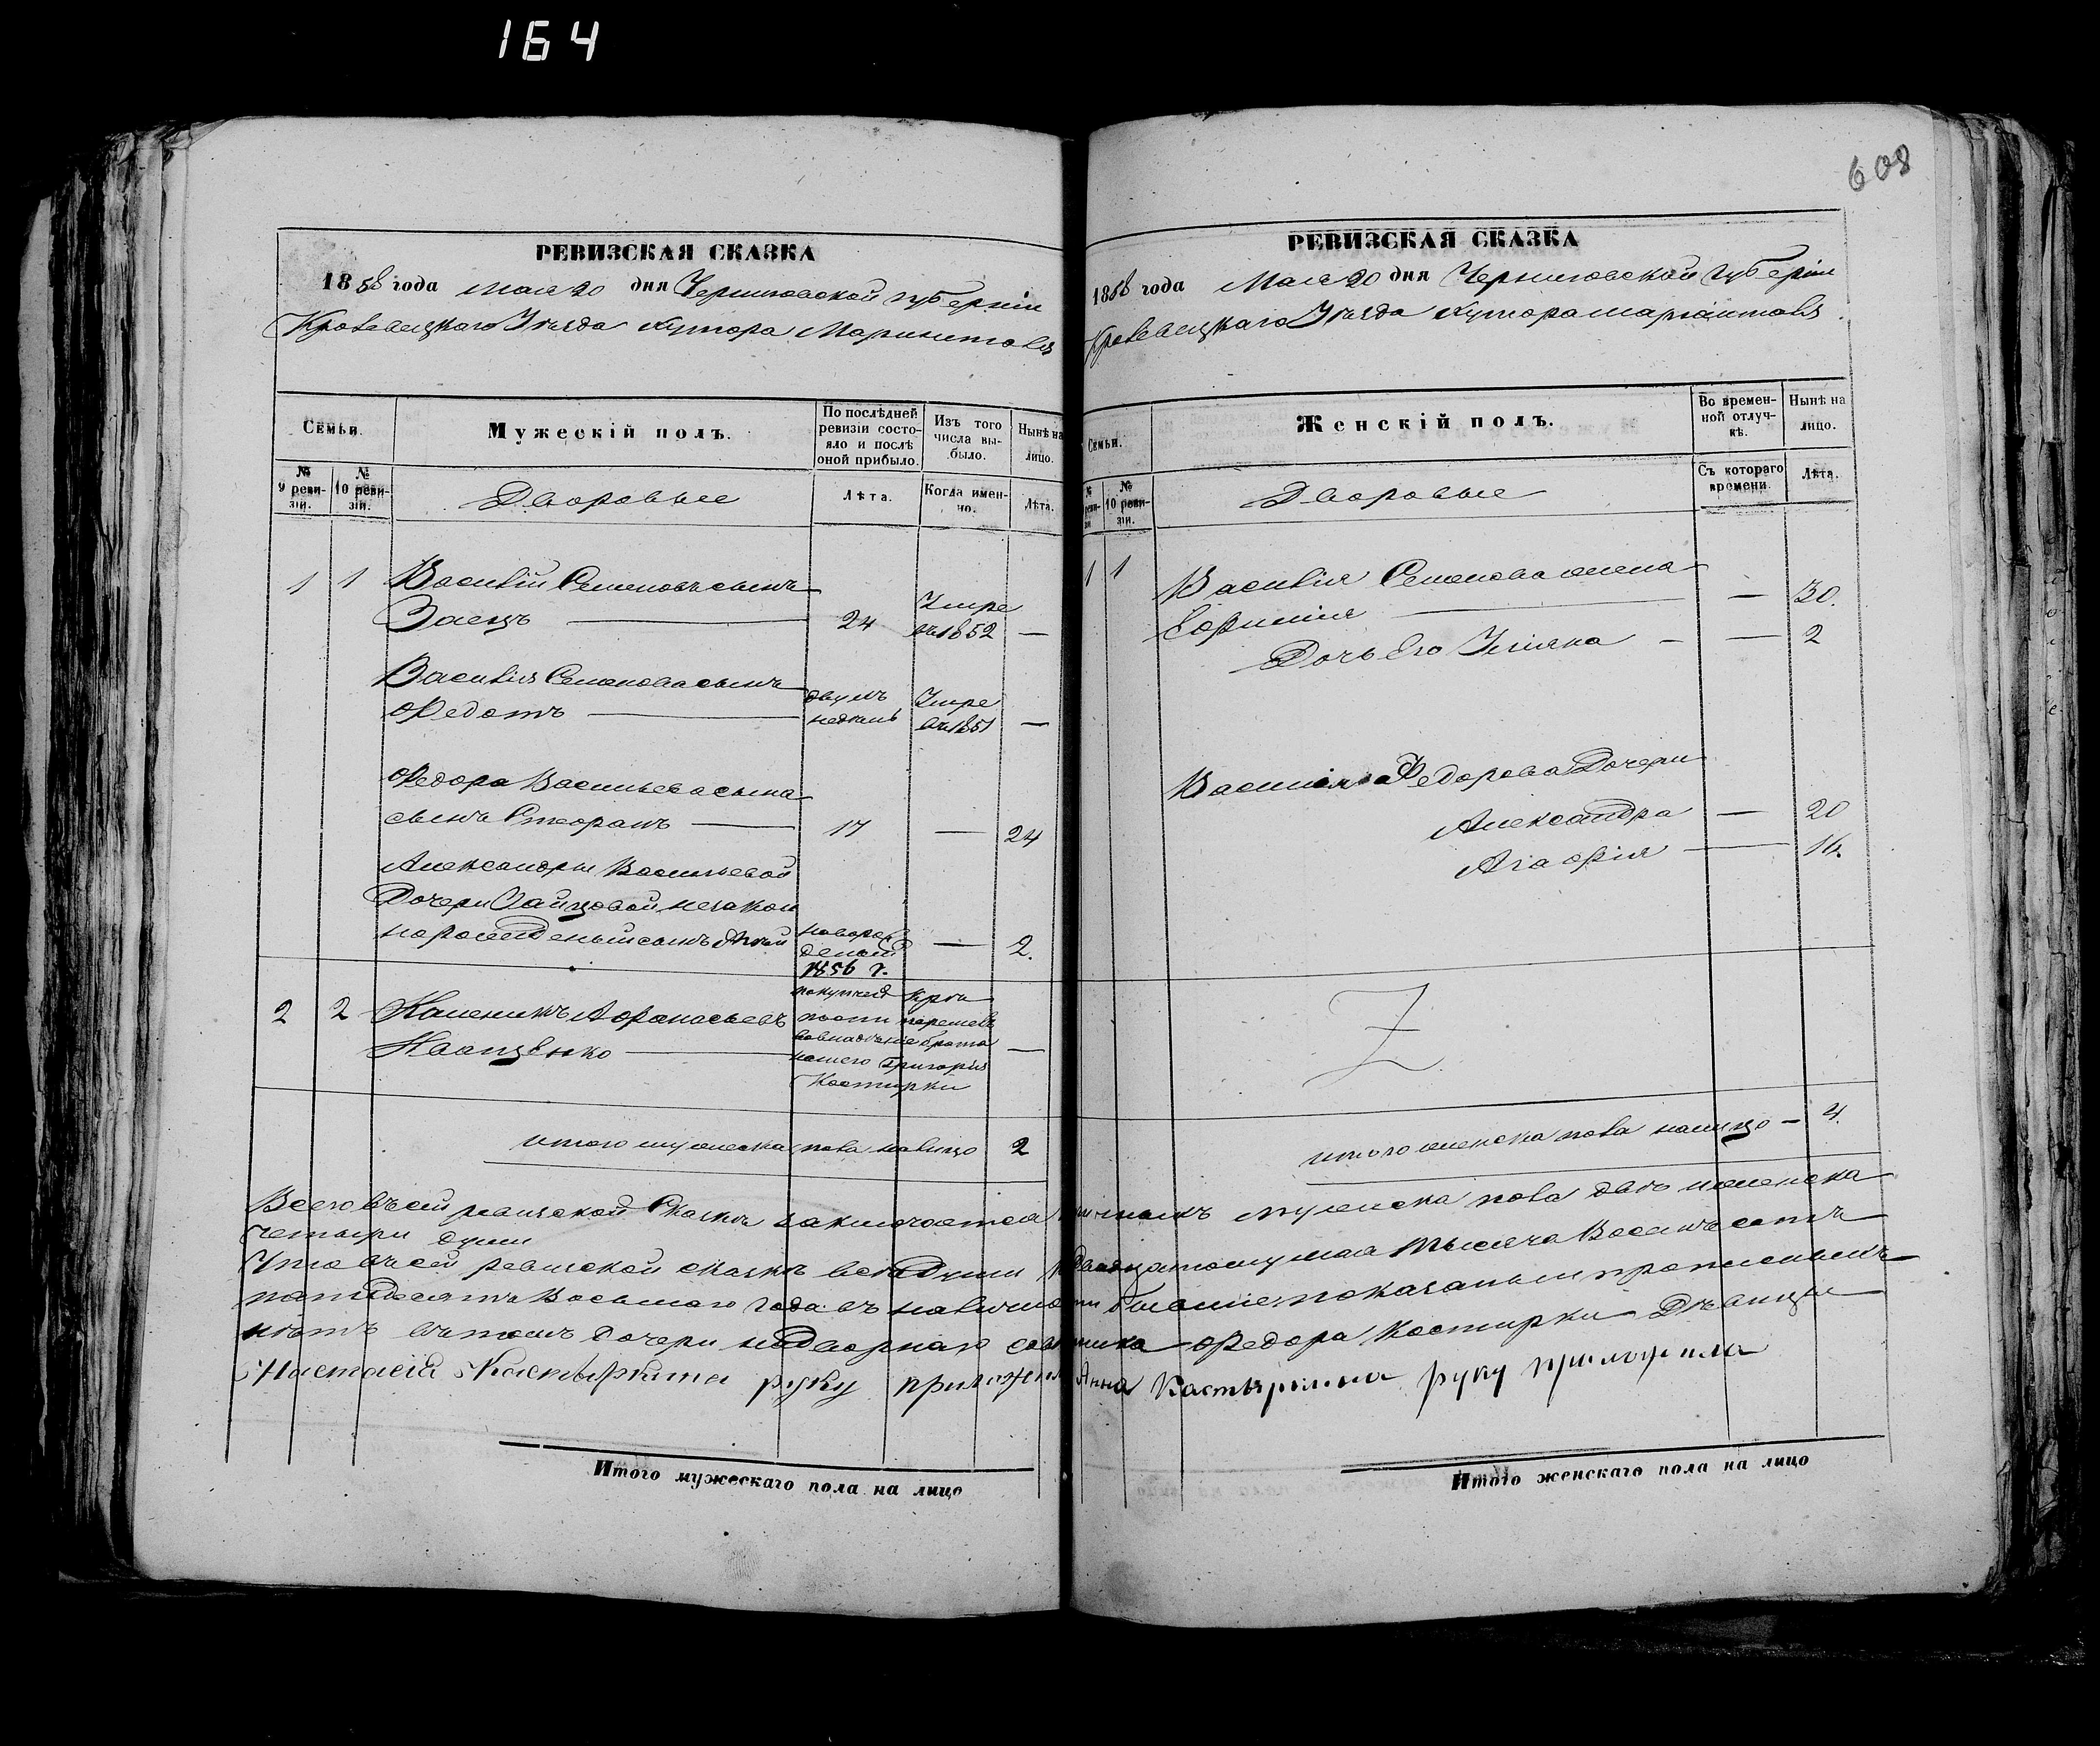 164
608
РЕВИЗСКАЯ СКАЗКА
1858 года мая 20 дня Черниговской губерніи
Кролевецкаго Уезда хутора
Семьи.
Мужескій полъ.
По послѣдней ревизіи состояло и послѣ оной прибыло.
Изъ того числа выбыло.
Нынѣ на лицо.
№ 9 ревизіи.
№ 10 ревизіи.
Дворовые
Лѣта.
Когда именно.
Лѣта.
1 1 Василій Семеновъ сынъ
Заецъ 24 Умре въ 1852 —
Василія Семенова сынъ
Федотъ двумъ недѣль Умре въ 1851 —
Федора Васильева сына
сынъ Стефанъ 17 — 24
Александры Васильевой
Дочери Зайцовой незакон
норожденый сынъ новорожденый 1856 г. — 2.
2 2 Каленикъ Афанасьевъ
Иващенко —
нашего Григорія
Костирки
итого мужеска пола налицо 2
РЕВИЗСКАЯ СКАЗКА
1858 года Мая 20 дня Черниговской губерніи
Кролевецкаго Уезда хутора
Семьи.
Женскій полъ.
Во временной отлучкѣ.
Нынѣ на лицо.
№ 10 ревизіи.
Дворовые
Съ котораго времени.
Лѣта.
1 1 Василія Семенова жена
Ефимія — 30.
Дочь Его Ульяна — — 2
Василія Федорова Дочери
Александра — 20
Агафія — 16.
Z
итого женска пола налицо — 4.
Всего въ сей ревизской Сказке заключается мужеска пола две и женска
четыри души
Что въ сей ревизской сказкѣ все Души Двадцатому мая тысяча Восемъ сотъ
пятдесятъ Восмаго года въ наличности бывшие показаны и прописныхъ
нетъ въ томъ Дочери надворнаго советника Федора Костирки Девицы
Настасія Кастыркина руку приложила Анна Кастыркина руку приложила
Итого мужескаго пола на лицо
Итого женскаго пола на лицо